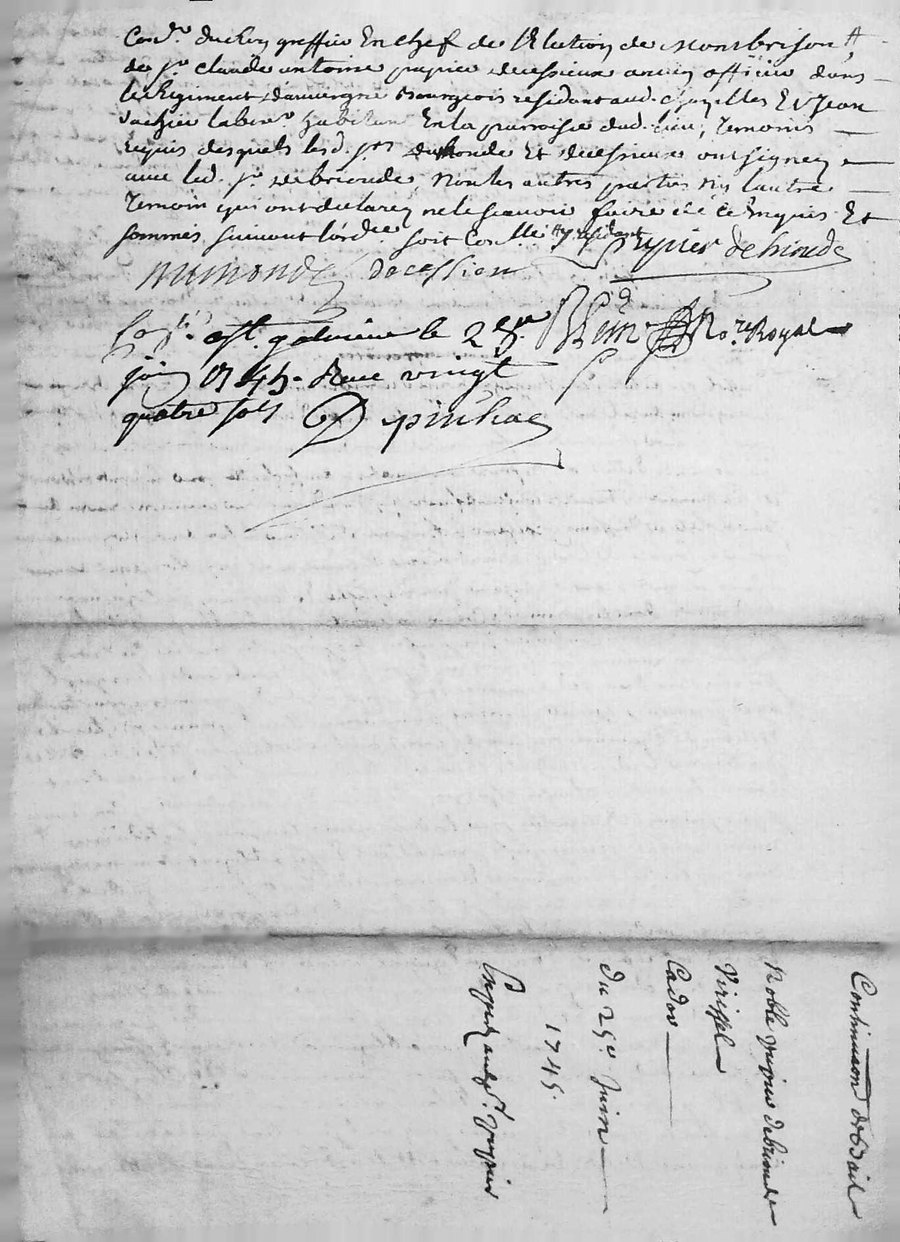 Con.er du Roy greffier En chef de l'Election de Montbrison tt
de s.r claude antoine pupier decessieux ancien officier dans
le Regiment dauvergne Bourgeois residant aud. chazelles Et Jean
vachier labour.r habitan En la parroisse dud. lieu, Temoins
requis desquels lesd. s.rs dumonde Et decessieux ont signez
avec led. s.r debrioude, Non les autres parties ny lautre
Temoin qui ont declarez ne le scavoir faire de ce Enquis Et
sommes suivant lord.ce soit Con.lle
pupier debrioude
Dumonde decessieux
No.re Royal
galmier le 28.e
juin 1745. Receu vingt
quatre sols Depinhac
Continuaon de Bail
Noble pupier debrioude
Virissel
Cador
du 25.e Juin
1745.
pupier